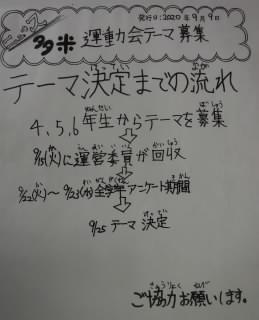 発行日:2020年9月9日
多米 運動会テーマ募集
テーマ決定までの流れ
4、5、6年生からテーマを募集
9/15(火)に運営委員が回収
9/22(火)～9/23(水)全学年アンケート期間
9/25 テーマ決定
ご協力お願いします。